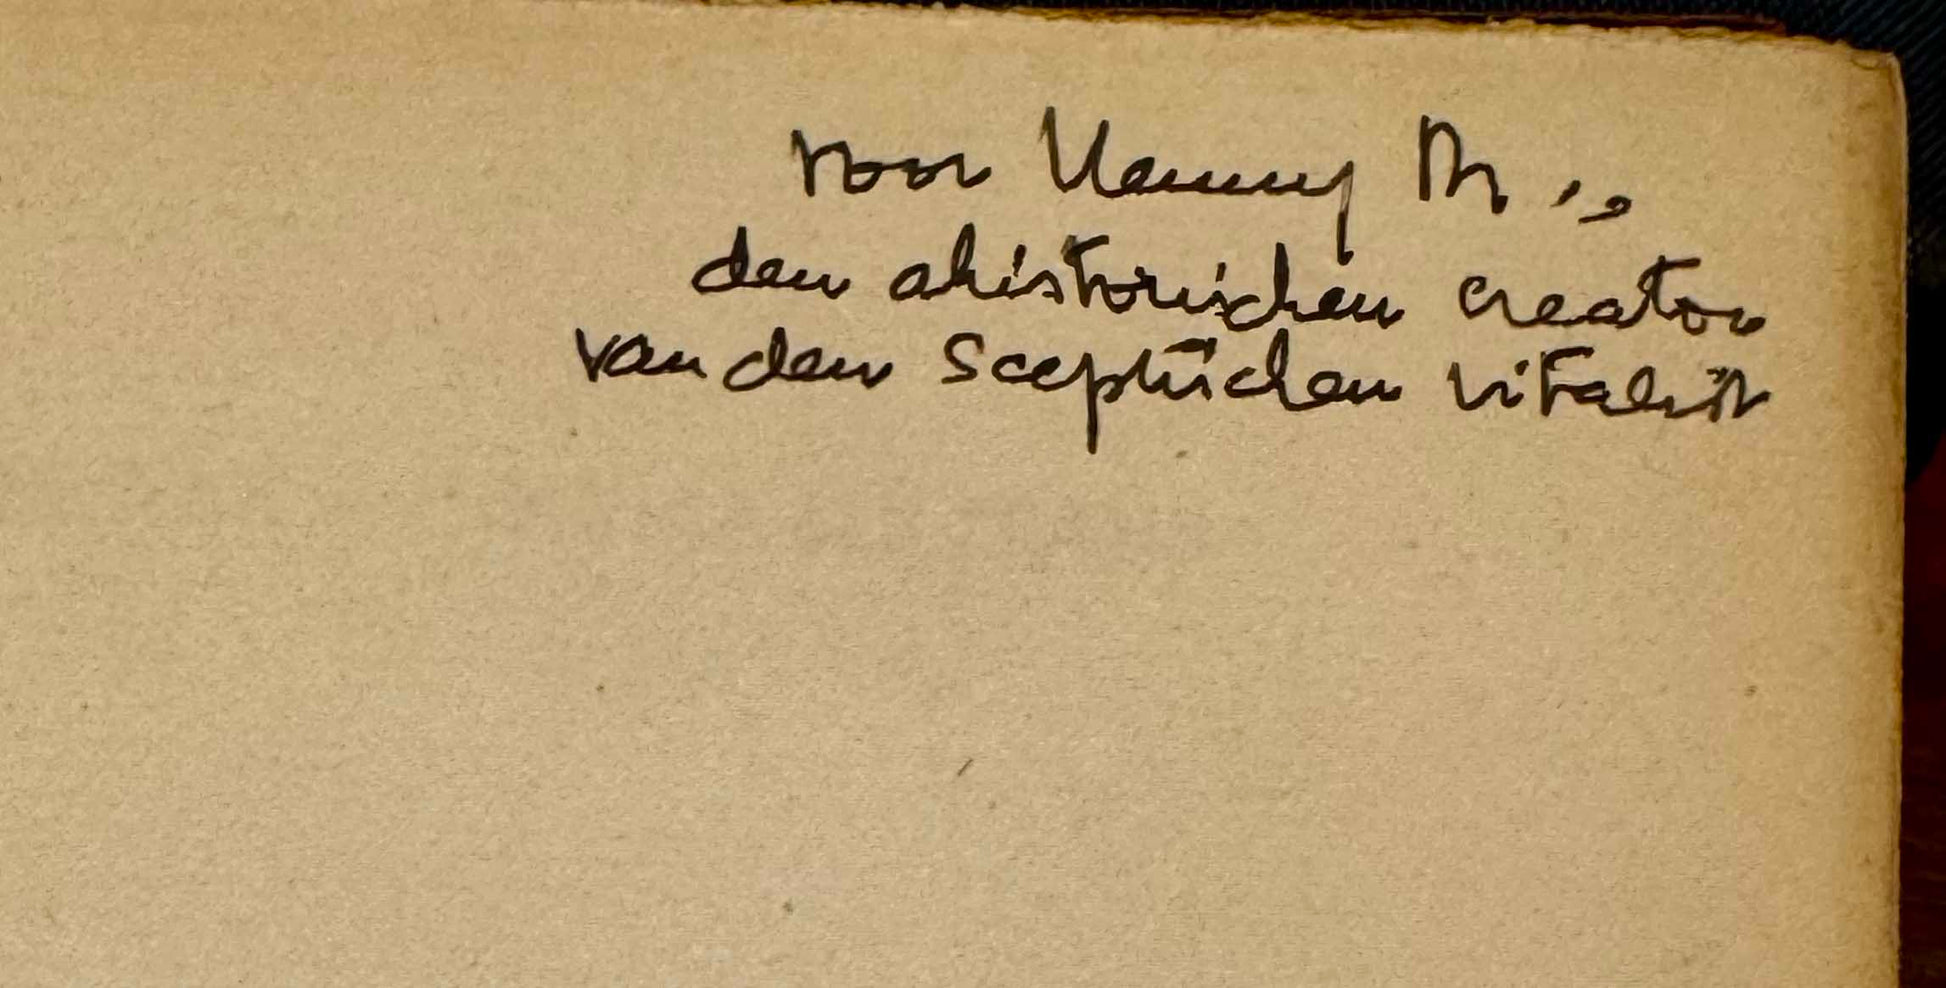 voor Henny M.,
den ahistorischen creator
van den Sceptischen vitalist